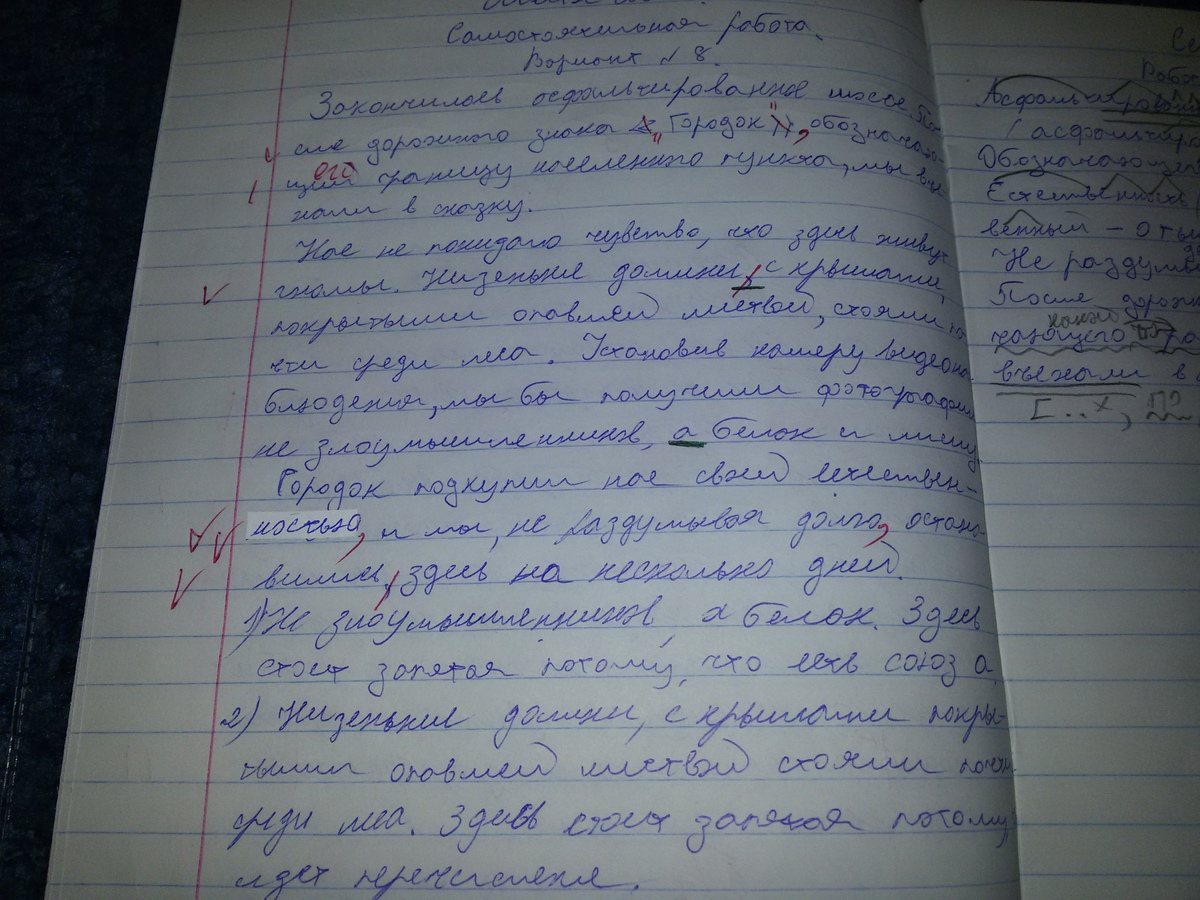 Самостоятельная работа.
Вариант № 8.
Закончилось асфальтированное шоссе. По-
сле дорожного знака "Городок", обозначаю-
щего границу населенного пункта, мы въе-
хали в сказку.
Нас не покидало чувство, что здесь живут
гномы. Низенькие домики, с крышами,
покрытыми опавшей листвой, стояли по-
чти среди леса. Установив камеру видеона-
блюдения, мы бы получили фотографии
не злоумышленников, а белок и лисиц
Городок подкупил нас своей естествен-
ностью, и мы, не раздумывая долго, остано-
вились, здесь на несколько дней.
1) Не злоумышленников, а белок. Здесь
стоит запятая потому, что есть союз а.
2) Низенькие домики, с крышами покры-
тыми опавшей листвой стояли почти
среди леса. Здесь стоит запятая потому,
идет перечисление.
Асфальтирован
/асфальтиро
Обозначающег
Естественность
венный – от
Не раздумыв
После дорож
чающего
въехали в